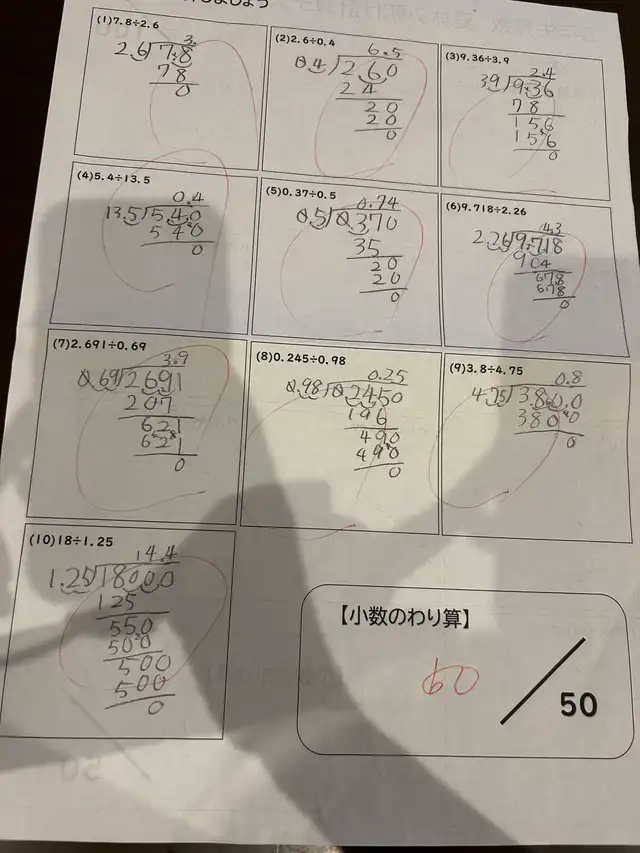 しましょう
(1)7.8÷2.6
3
2.6 7.8
78
0
(2)2.6÷0.4
6.5
0.4 2.60
24
20
20
0
(3)9.36÷3.9
2.4
3.9 9.36
78
156
156
0
(4)5.4÷13.5
0.4
13.5 5.40
540
0
(5)0.37÷0.5
0.74
0.5 0.370
35
20
20
0
(6)9.718÷2.26
4.3
2.26 9.718
904
678
678
0
(7)2.691÷0.69
3.9
0.69 2.691
207
621
621
0
(8)0.245÷0.98
0.25
0.98 0.2450
196
490
490
0
(9)3.8÷4.75
0.8
4.75 3.80.0
3800
0
(10)18÷1.25
14.4
1.25 18000
125
550
500
500
500
0
【小数のわり算】
60
50